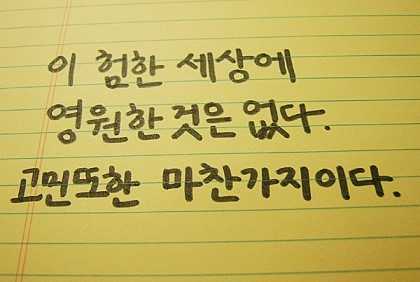 이 험한 세상에
영원한 것은 없다.
고민또한 마찬가지이다.